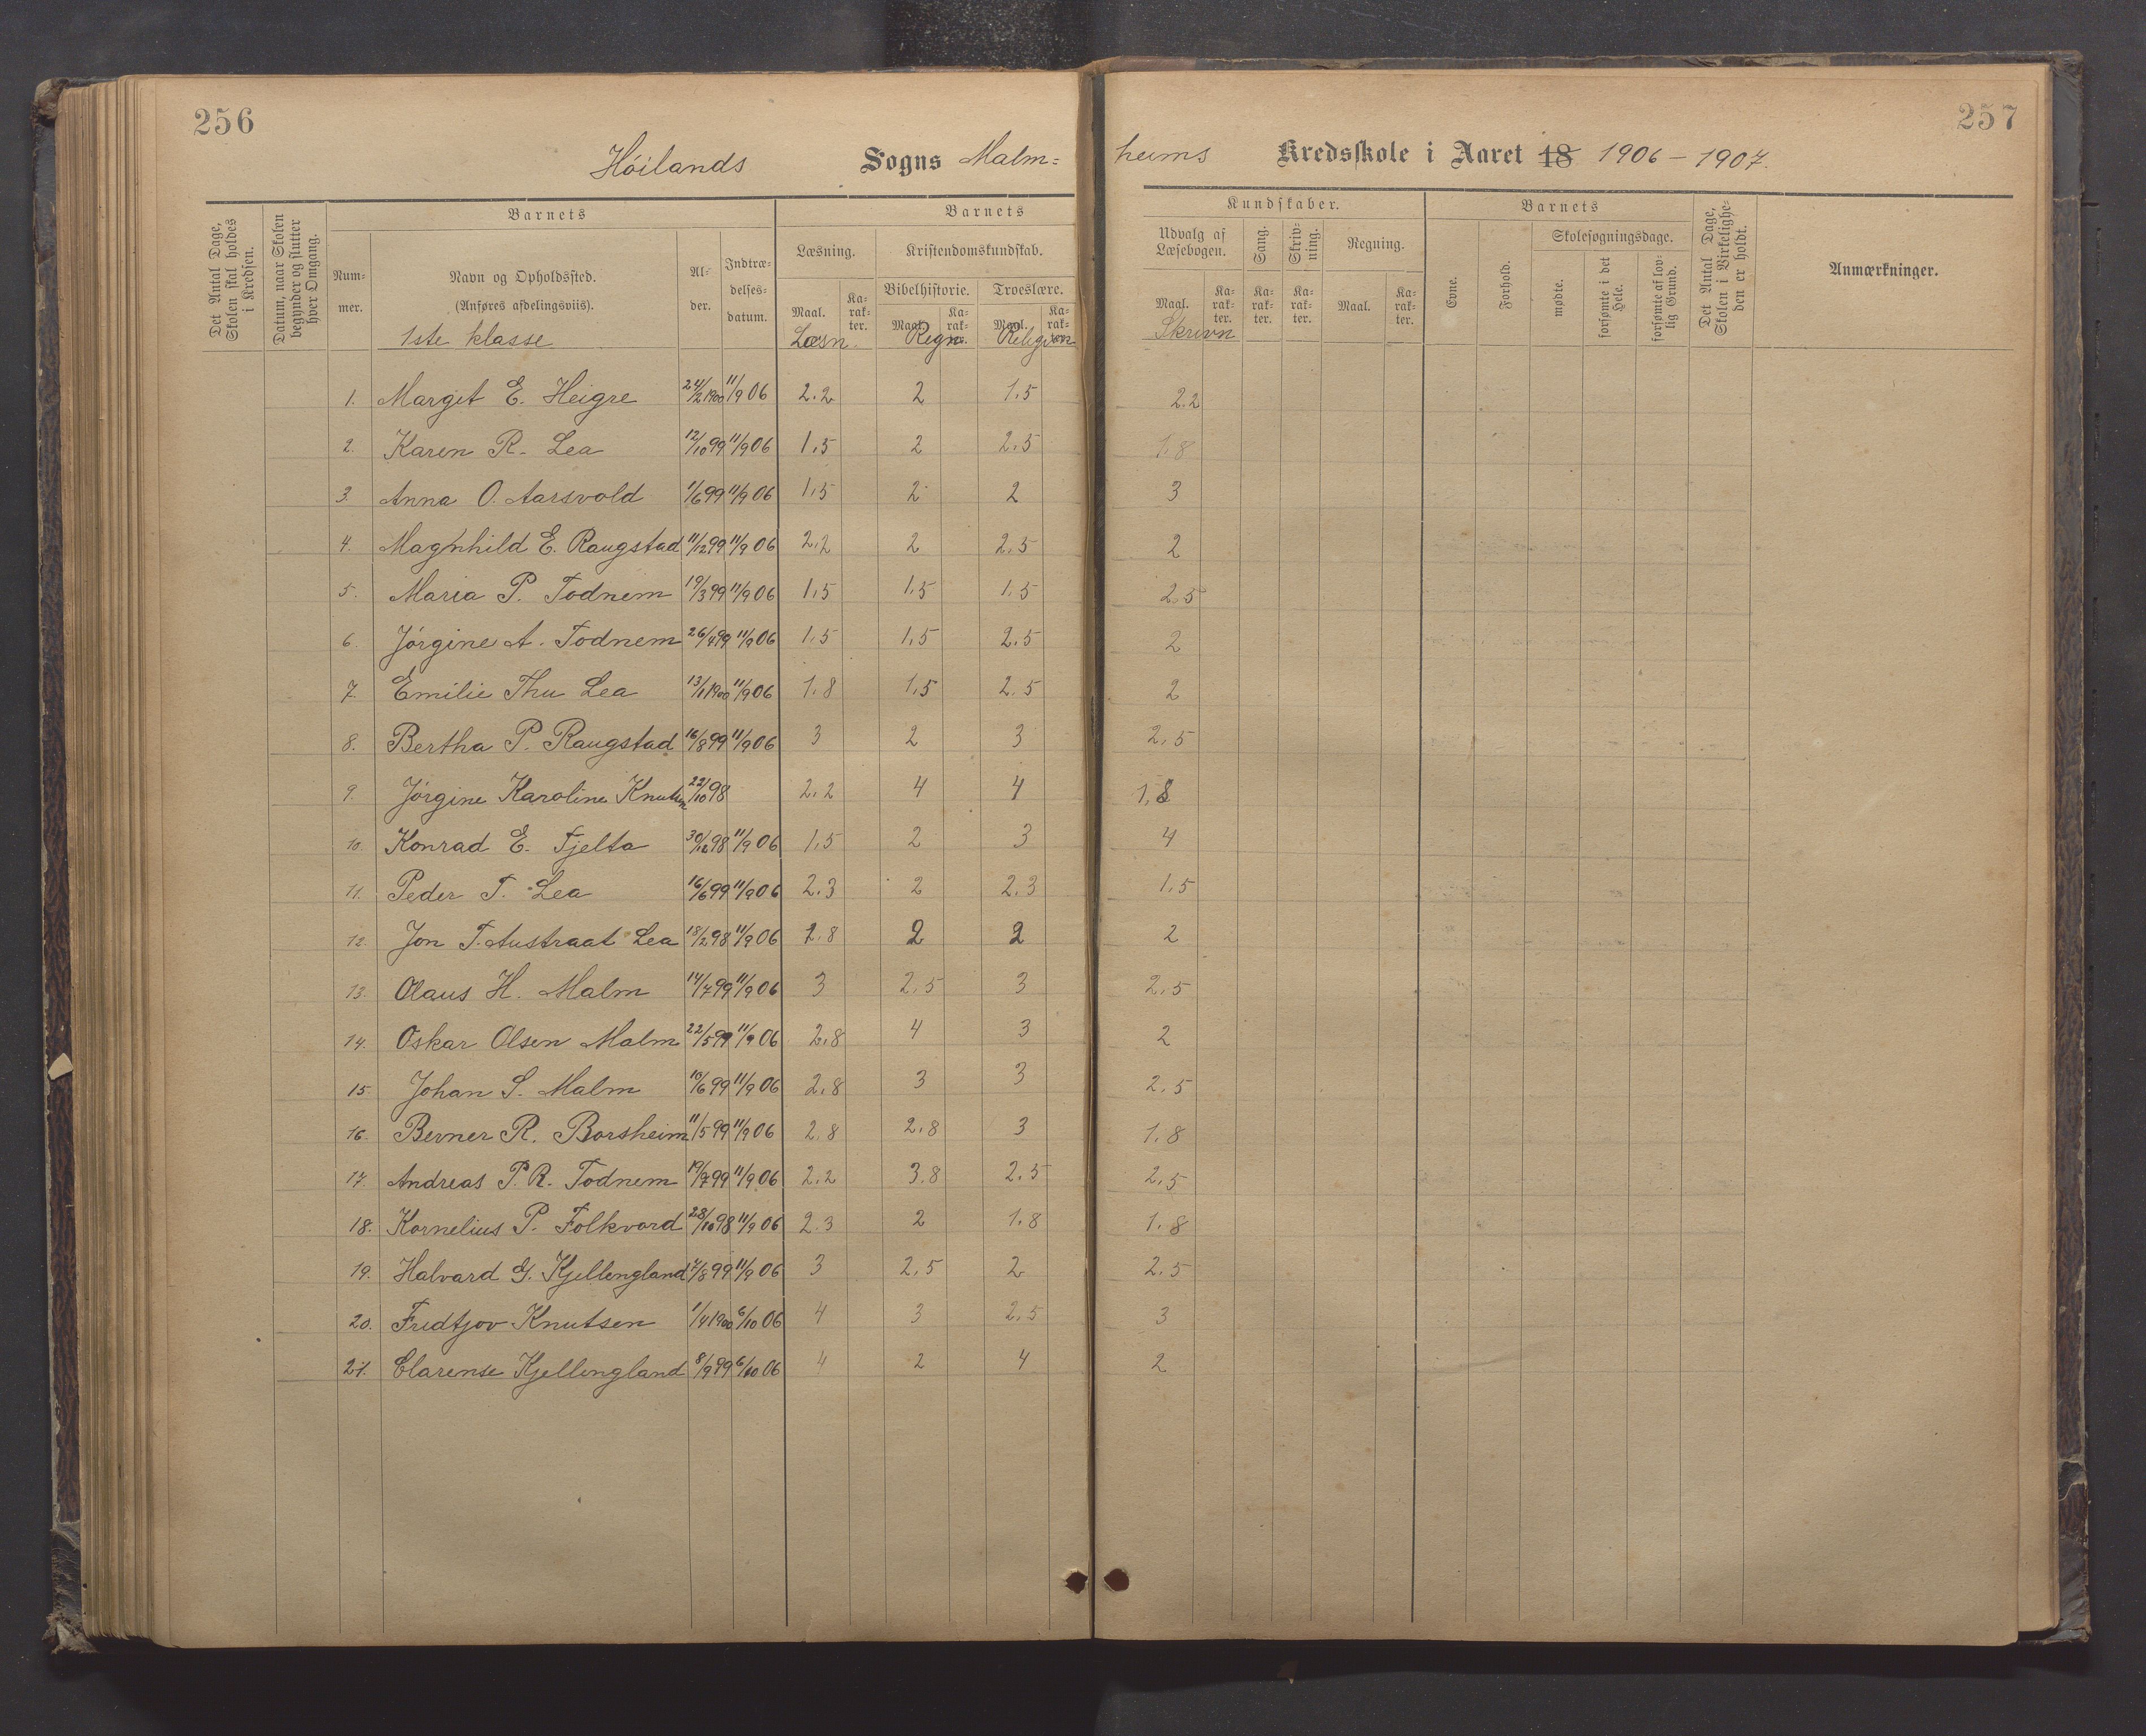 256
257
Höilands Sogns Malm= heims Kredsskole i Aaret 18 1906 – 1907.
Det Antal Dage, Skolen skal holdes i Kredsen.
Datum, naar Skolen begynder og slutter hver Omgang.
Barnets
Num- mer.
Navn og Opholdssted.
(Anføres afdelingsviis).
1ste klasse
Al- der.
Indtræ- delses- datum.
Barnets
Læsning.
Maal.
Ka- rak- ter.
Læsn.
Kristendomskundskab.
Bibelhistorie.
Maal.
Ka- rak- ter.
Regn.
Troeslære.
Maal.
Ka- rak- ter.
Religion
Kundskaber.
Udvalg af Læsebogen.
Maal.
Ka- rak- ter.
Skrivn
Sang.
Ka- rak- ter.
Skriv- ning.
Ka- rak- ter.
Regning.
Maal.
Ka- rak- ter.
Barnets
Evne.
Forhold.
Skolesøgningsdage.
mødte.
forsømte i det Hele.
forsømte af lov- lig Grund.
Det Antal Dage, Skolen i Virkelighe- den er holdt.
Anmærkninger.
1. Margit E. Heigre 24/2 1900 11/9 06 2.2 2 1.5 2.2
2. Karen R. Lea 12/10 99 11/9 06 1.5 2 2.5 1.8
3. Anna O. Aarsvold 1/6 99 11/9 06 1.5 2 2 3
4. Magnhild E. Raugstad 11/12 99 11/9 06 2.2 2 2.5 2
5. Maria P. Todnem 19/3 99 11/9 06 1.5 1.5 1.5 2.5
6. Jörgine A. Todnem 26/4 99 11/9 06 1.5 1.5 2.5 2
7. Emilie Thu Lea 13/1 1900 11/9 06 1.8 1.5 2.5 2
8. Bertha P. Raugstad 16/8 99 11/9 06 3 2 3 2.5
9. Jörgine Karoline Knutsen 22/10 98 2.2 4 4 1.8
10. Konrad E. Tjelta 30/12 98 11/9 06 1.5 2 3 4
11. Peder T. Lea 16/6 99 11/9 06 2.3 2 2.3 1.5
12. Jon T. Austraat Lea 18/2 98 11/9 06 2.8 2 2 2
13. Olaus H. Malm 14/7 99 11/9 06 3 2.5 3 2.5
14. Oskar Olsen Malm 22/5 99 11/9 06 2.8 4 3 2
15. Johan S. Malm 10/6 99 11/9 06 2.8 3 3 2.5
16. Berner R. Borsheim 11/5 99 11/9 06 2.8 2.8 3 1.8
17. Andreas P. R. Todnem 19/7 99 11/9 06 2.2 3.8 2.5 2.5
18. Kornelius P. Folkvord 28/10 98 11/9 06 2.3 2 1.8 1.8
19. Halvard G. Kjellengland 7/8 99 11/9 06 3 2.5 2 2.5
20. Fridtjov Knutsen 1/4 1900 6/10 06 4 3 2.5 3
21. Clarense Kjellengland 8/9 99 6/10 06 4 2 4 2